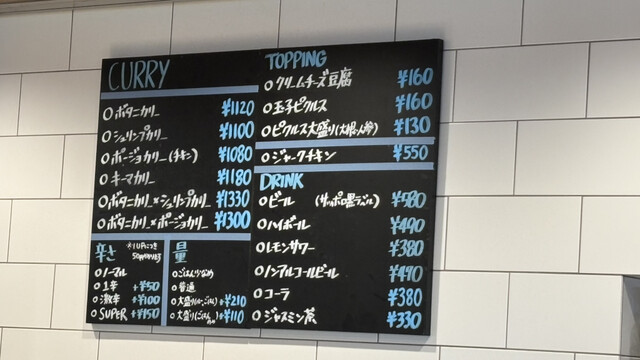 CURRY
○ボタニカリー ¥1120
○シュリンプカリー ¥1100
○ポージョカリー(チキン) ¥1080
○キーマカリー ¥1180
○ボタニカリー×シュリンプカリー ¥1330
○ボタニカリー×ポージョカリー ¥1300
辛さ
○ノーマル
○1辛 +¥50
○激辛 +¥100
○SUPER +¥150
量
○ごはん少なめ
○普通
○大盛り +¥210
○大盛り +¥110
TOPPING
○クリームチーズ豆腐 ¥160
○玉子ピクルス ¥160
○ピクルス大盛り(大根、人参) ¥130
○ジャークチキン ¥550
DRINK
○ビール (サッポロ黒ラベル) ¥580
○ハイボール ¥490
○レモンサワー ¥380
○ノンアルコールビール ¥490
○コーラ ¥380
○ジャスミン茶 ¥330